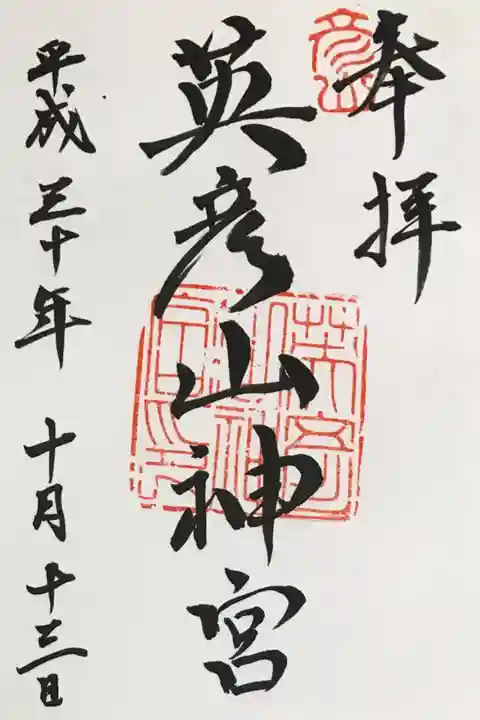 奉拝
彦山
英彦山神宮
平成三十年十月十三日